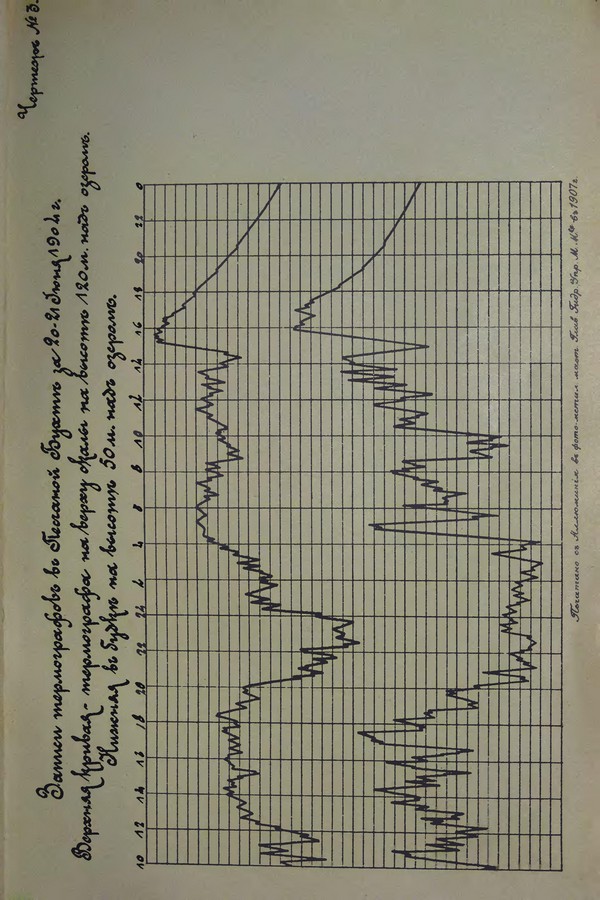 Чертежъ № 3.
Записи термографовъ въ Песчаной Бухтѣ за 20-21 Июня 1904 г.
Верхняя кривая - термографа на верху скалы на высотѣ 120 м. надъ озеромъ.
Нижняя въ будкѣ на высотѣ 50 м. надъ озеромъ.
10 12 14 16 18 20 22 24 2 4 6 8 10 12 14 16 18 20 22 0
Печатано съ Аллюминія въ фото-метал. маст. Глав. Гидр. Упр. М. Мва въ 1907 г.